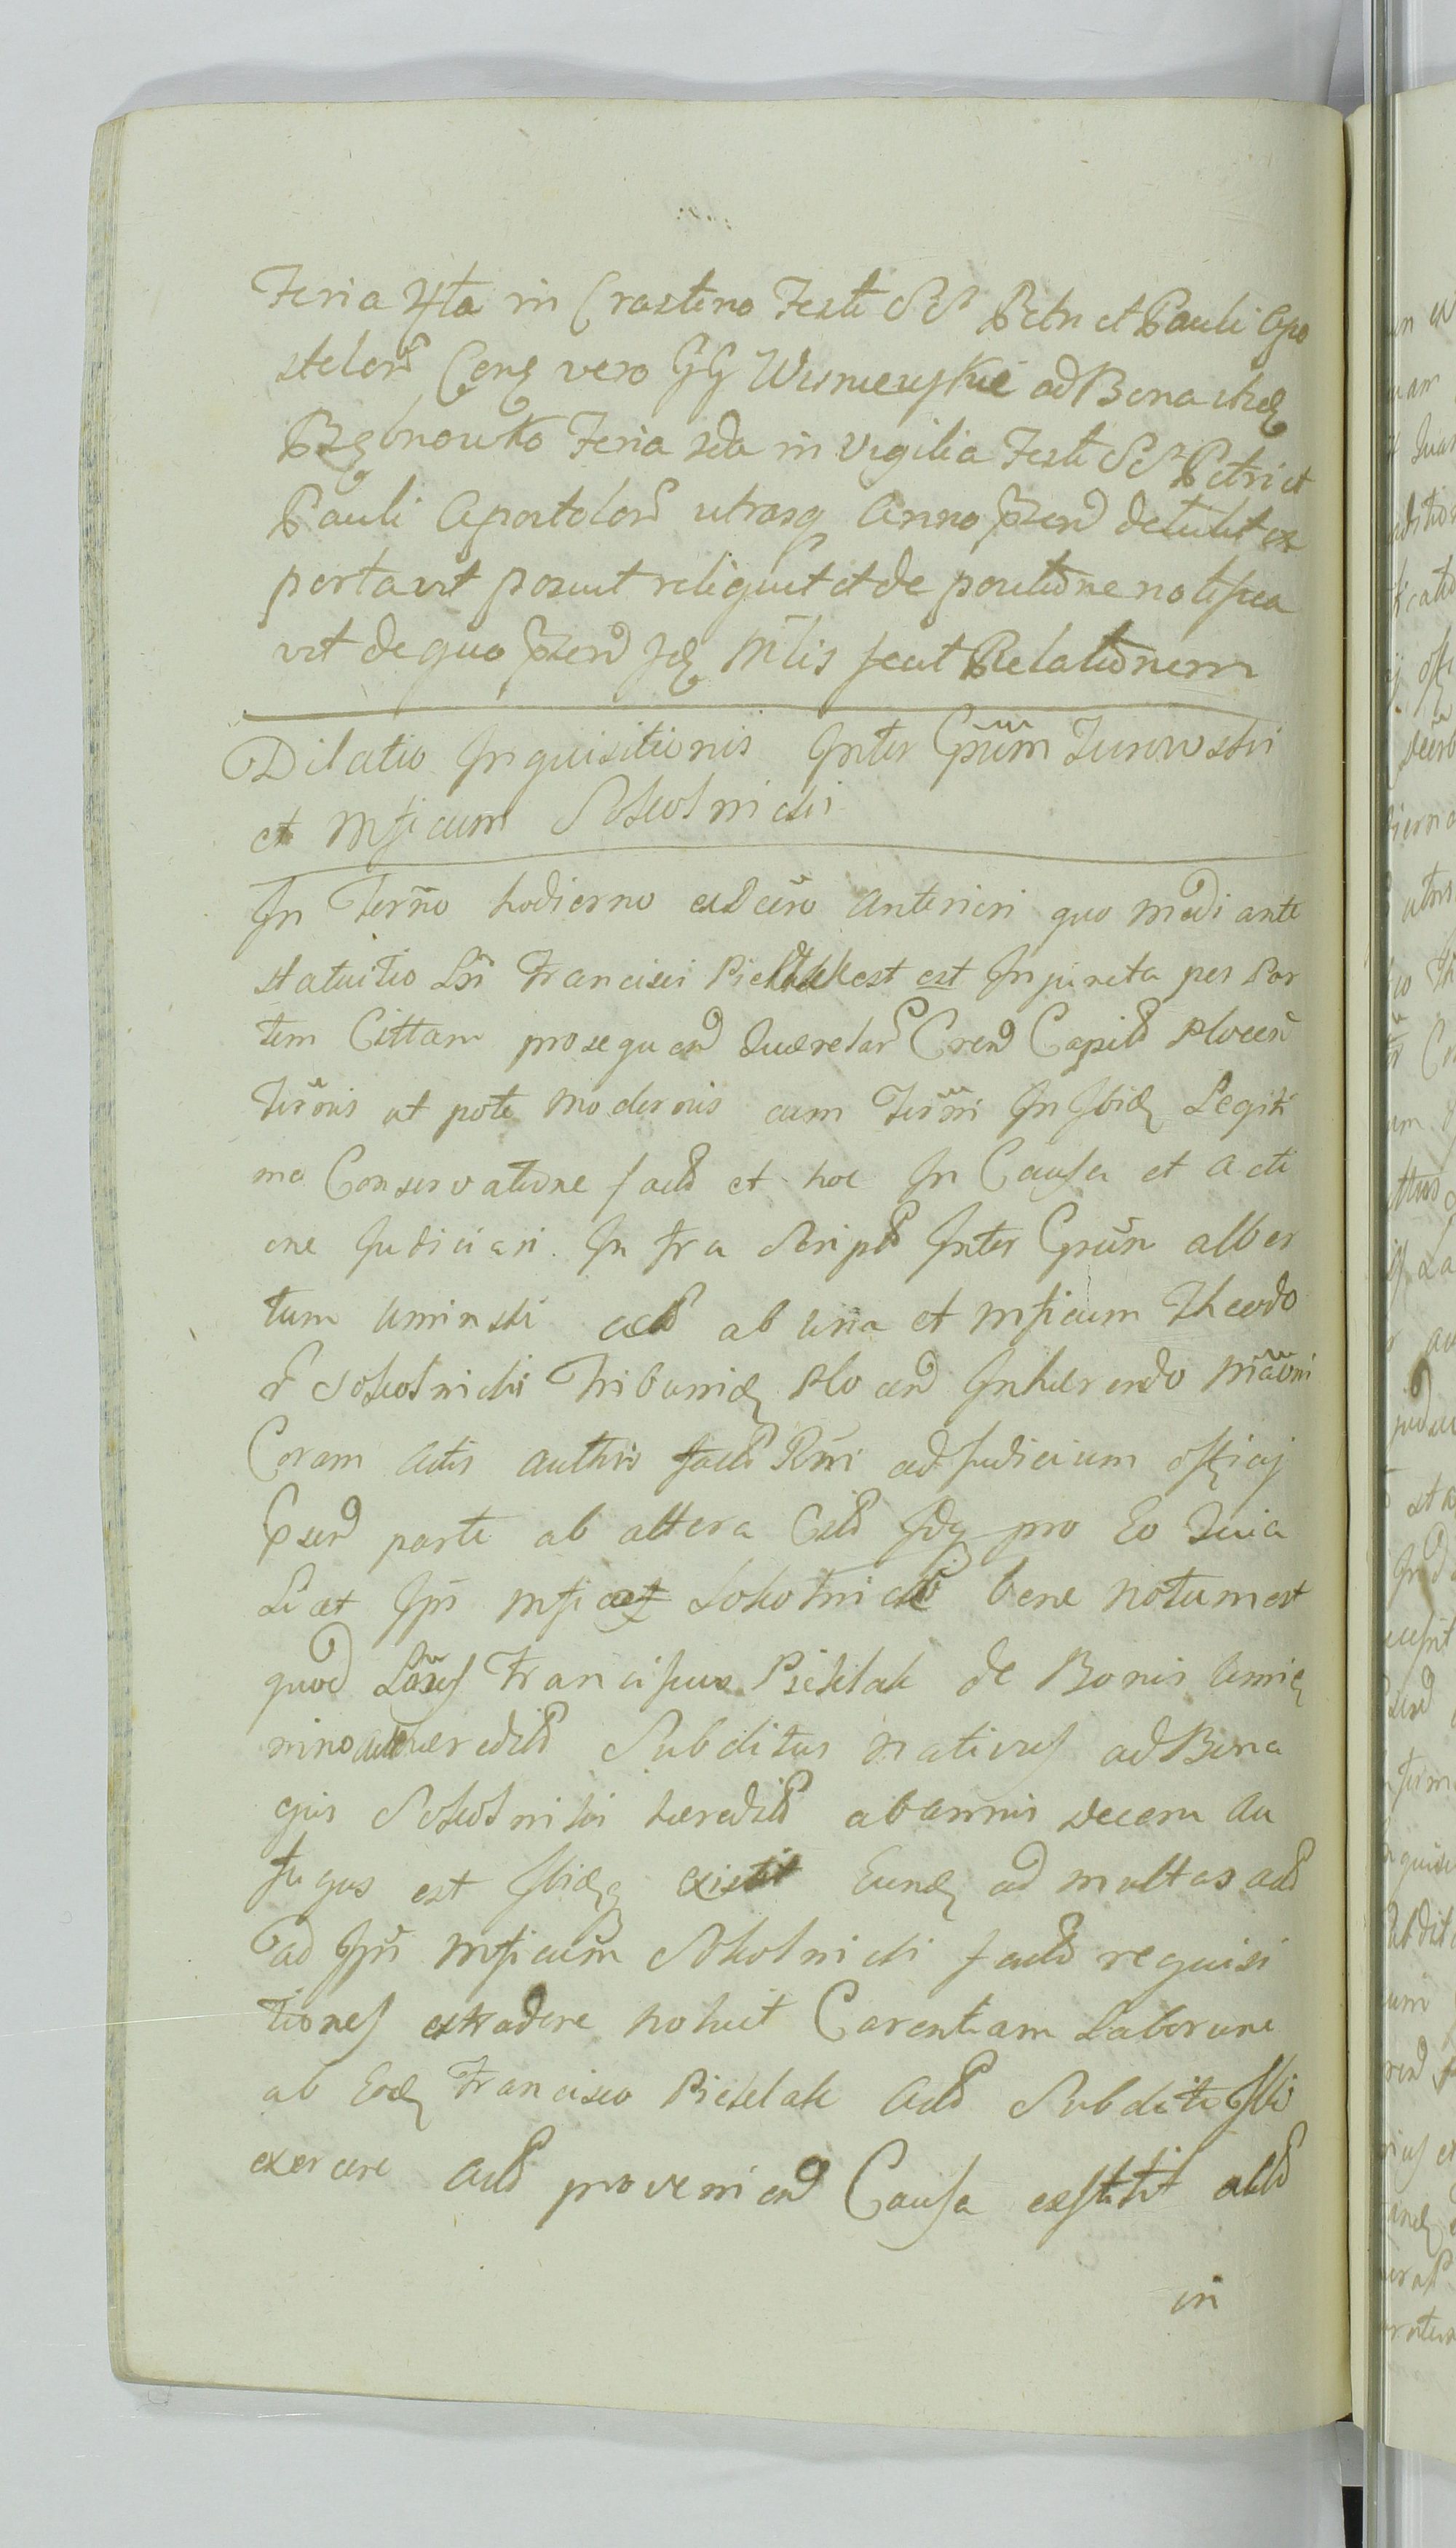 Feria 4ta in Crastino Festi SS Petri et Pauli Apo
stolor Cong vero GG Wisniewskie ad Bona itidq
Rzębnowko Feria 2da in Vigilia Festi SS Petri et
Pauli Apostolor utrasq Anno pnd detulit ex
portavit posuit reliquit et de positione notifica
vit de quo pnd idq Mlis fecit Relationem
Dilatio Inquisitionis Inter Grum Turowski
et Mficum Sokolnicki
In Terno hodierno ex Decro anteriori quo mediante
statuitio Lri Francisci Pieklak est est Injuncta per Par
tem Cittam prosequend Querelar Crend Capit Plocen
Ternis ut pote modernis cum Terni In Ibid Legiti
ma Conservatione fact et hoc In Causa et acti
one Judiciari Infra Script Inter Grum alber
tum Uminski act ab una et Mficum Theodo
r Sokolnicki Tribunid Plocen Inherendo Maoni
Coram actis authis fact Rni ad Judicium officij
pnd parte ab altera Citt Idq pro Eo Quia
Licet Ipi Mfico Sokolnicki bene notum est
quod Labos Franciscus Pieklak de Bonis Umie
nino hæredit Subditus nativus ad Bona
ejus Sokolnicki hæredit ab annis decem au
fugus est Ibidq existit Eund ad multas act
ad Ipi Mficum Sokolnicki fact requisi
tiones extradere noluit Carentiam Laborum
ab Eod Francisco Pieklak Act Subdito Ibi
exercere Act proveniend Causa exstitit act
in